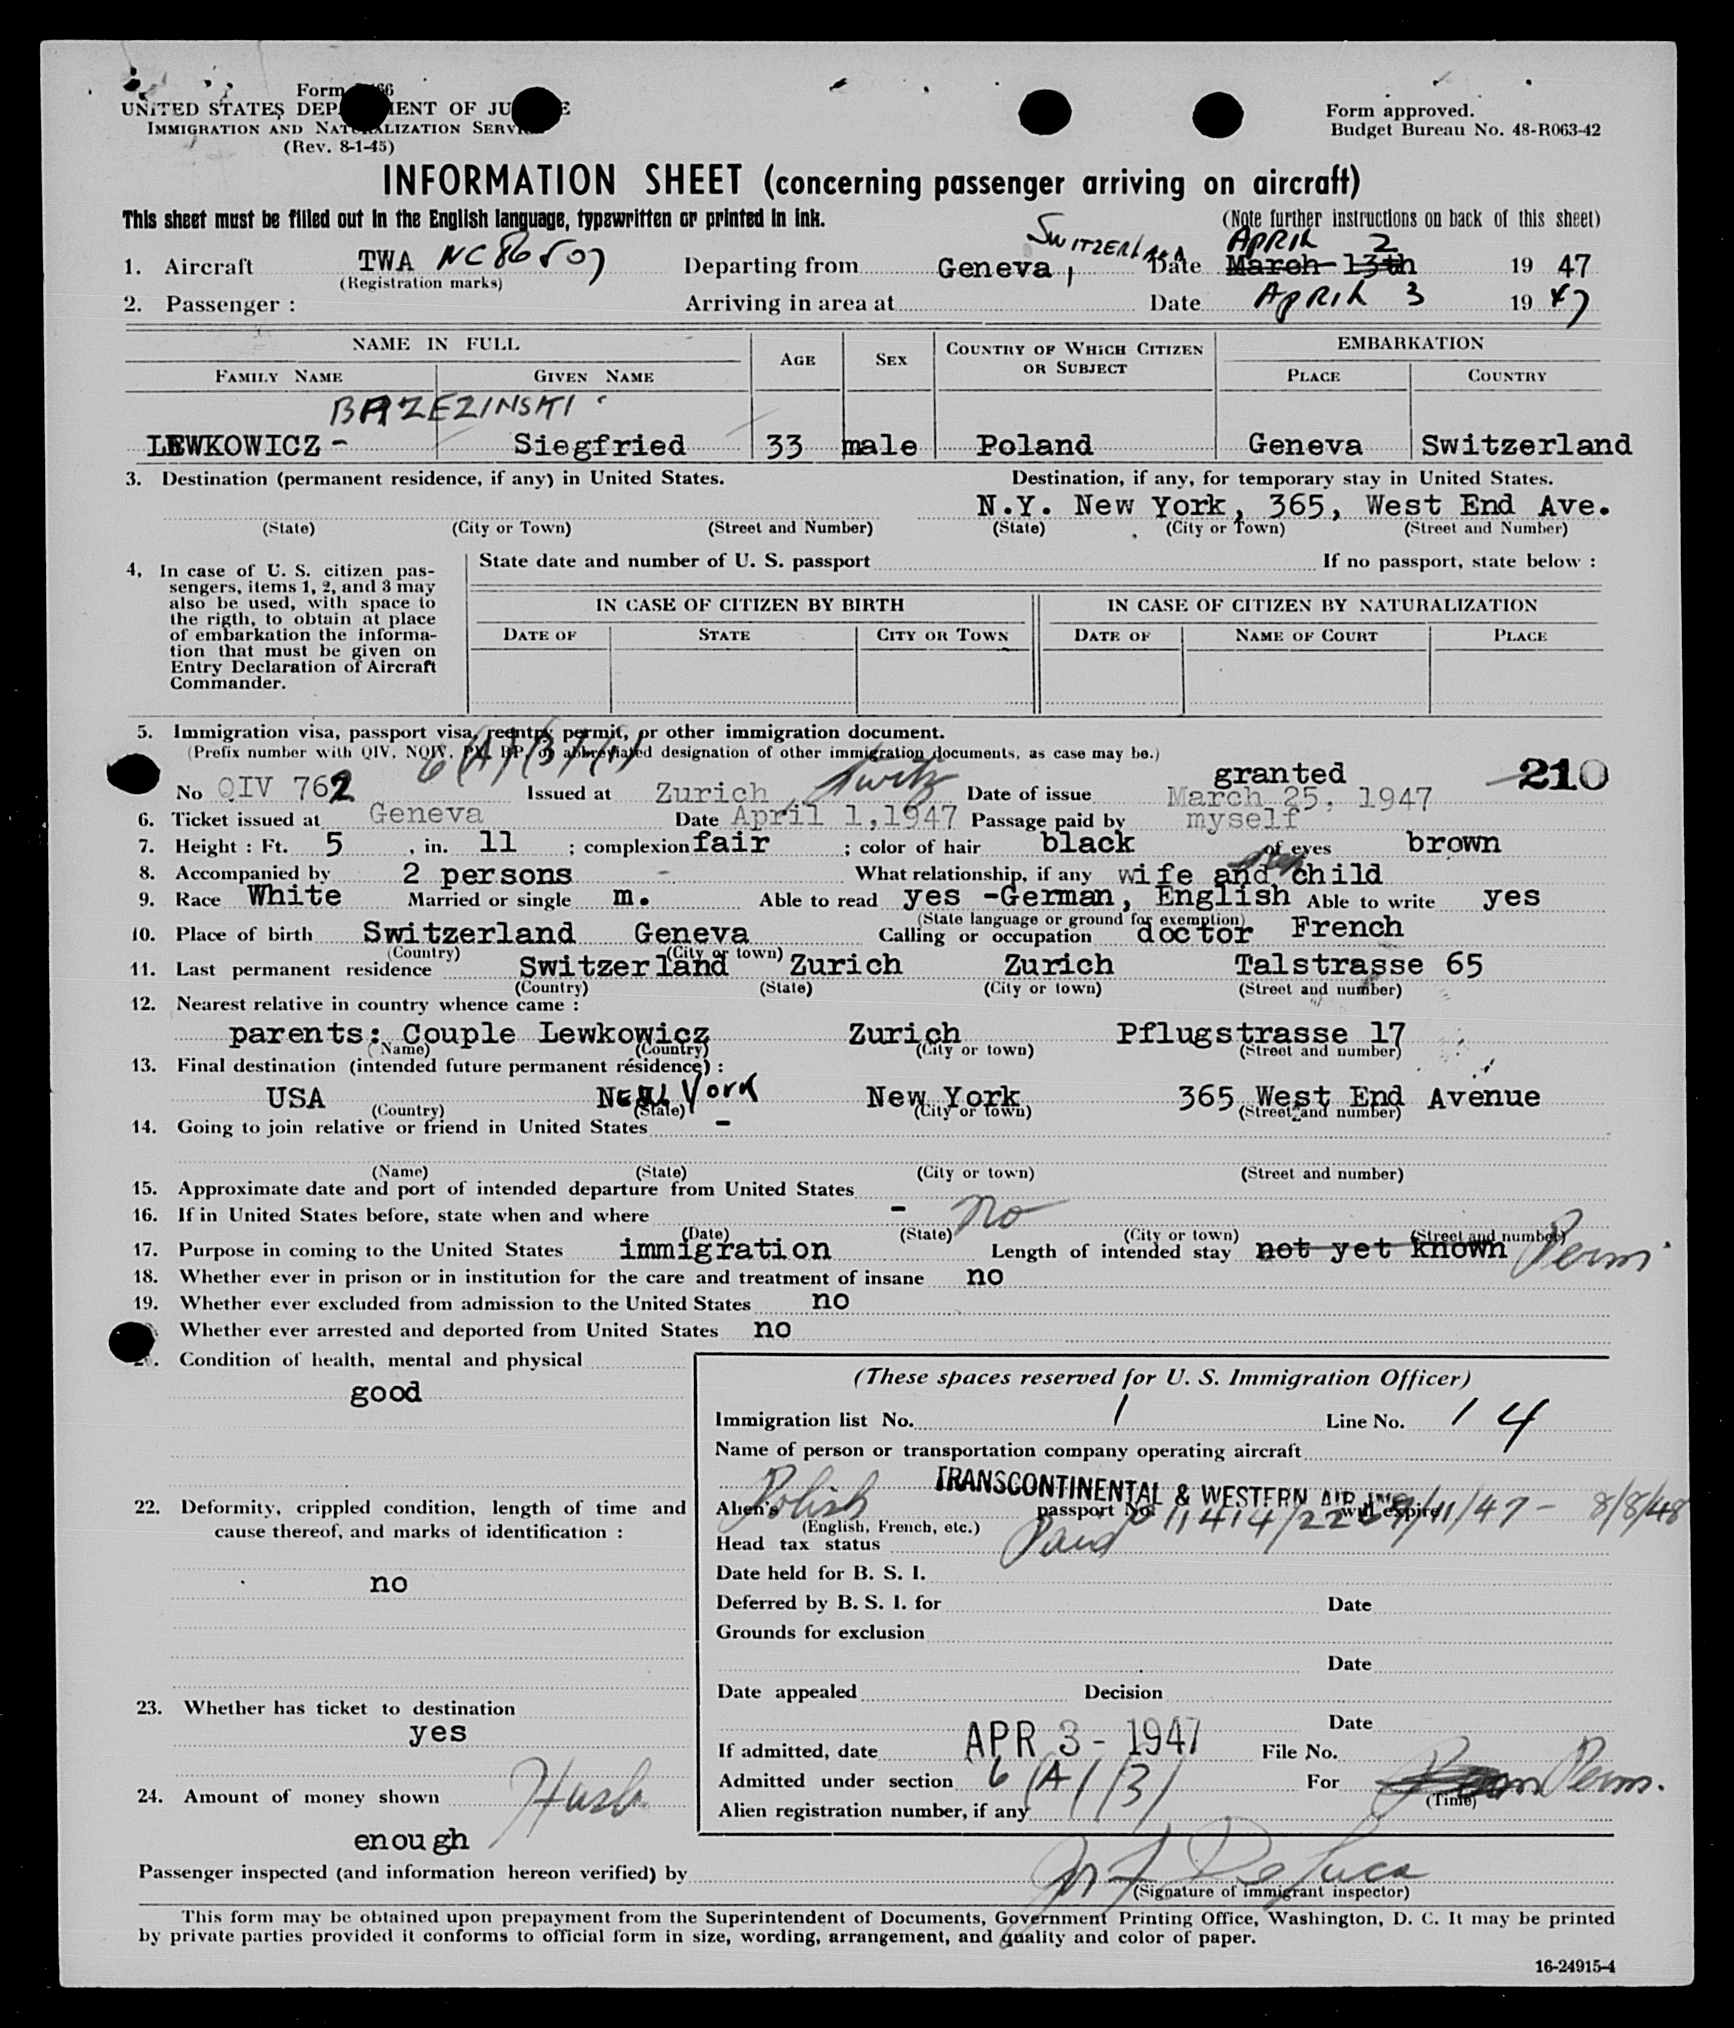 Form
UNITED STATES DEP MENT OF JU E
IMMIGRATION AND NATURALIZATION SERV
(Rev. 8-1-45)
Form approved.
Budget Bureau No. 48-R063-42
INFORMATION SHEET (concerning passenger arriving on aircraft)
This sheet must be filled out in the English language, typewritten or printed in ink.
(Note further instructions on back of this sheet)
SWITZERLAND APRIL 2
1. Aircraft TWA NC 86507 Departing from Geneva, Date March 13th 19 47
(Registration marks)
2. Passenger : Arriving in area at Date APRIL 3 19 47
NAME IN FULL AGE SEX COUNTRY OF WHICH CITIZEN OR SUBJECT EMBARKATION
FAMILY NAME GIVEN NAME PLACE COUNTRY
BRZEZINSKI
LEWKOWICZ- Siegfried 33 male Poland Geneva Switzerland
3. Destination (permanent residence, if any) in United States. Destination, if any, for temporary stay in United States.
N.Y. New York, 365, West End Ave.
(State) (City or Town) (Street and Number) (State) (City or Town) (Street and Number)
4. In case of U. S. citizen pas-
sengers, items 1, 2, and 3 may
also be used, with space to
the rigth, to obtain at place
of embarkation the informa-
tion that must be given on
Entry Declaration of Aircraft
Commander.
State date and number of U. S. passport If no passport, state below :
IN CASE OF CITIZEN BY BIRTH IN CASE OF CITIZEN BY NATURALIZATION
DATE OF STATE CITY OR TOWN DATE OF NAME OF COURT PLACE
5. Immigration visa, passport visa, reentry permit, or other immigration document.
(Prefix number with QIV, NQIV, PV, RP, or abbreviated designation of other immigration documents, as case may be.)
6(A)(3)
granted 210
No QIV 762 Issued at Zurich, Switz Date of issue March 25, 1947
6. Ticket issued at Geneva Date April 1,1947 Passage paid by myself
7. Height : Ft. 5 , in. 11 ; complexion fair ; color of hair black of eyes brown
8. Accompanied by 2 persons - What relationship, if any wife and child
9. Race White Married or single m. Able to read yes -German, English Able to write yes
(State language or ground for exemption)
10. Place of birth Switzerland Geneva Calling or occupation doctor French
(Country) (City or town)
11. Last permanent residence Switzerland Zurich Zurich Talstrasse 65
(Country) (State) (City or town) (Street and number)
12. Nearest relative in country whence came :
parents: Couple Lewkowicz Zurich Pflugstrasse 17
(Name) (Country) (City or town) (Street and number)
13. Final destination (intended future permanent résidence) :
USA New York New York 365 West End Avenue
(Country) (State) (City or town) (Street and number)
14. Going to join relative or friend in United States -
(Name) (State) (City or town) (Street and number)
15. Approximate date and port of intended departure from United States
16. If in United States before, state when and where - no
(Date) (State) (City or town) (Street and number)
17. Purpose in coming to the United States immigration Length of intended stay not yet known Perm
18. Whether ever in prison or in institution for the care and treatment of insane no
19. Whether ever excluded from admission to the United States no
Whether ever arrested and deported from United States no
Condition of health, mental and physical
good
22. Deformity, crippled condition, length of time and
cause thereof, and marks of identification :
no
23. Whether has ticket to destination
yes
24. Amount of money shown
enough
(These spaces reserved for U. S. Immigration Officer)
Immigration list No. 1 Line No. 14
Name of person or transportation company operating aircraft
TRANSCONTINENTAL & WESTERN AIR INC
Alien's Polish passport No. 11414/22 will expire 8/8/48
(English, French, etc.)
Head tax status Paid
Date held for B. S. I.
Deferred by B. S. I. for Date
Grounds for exclusion
Date
Date appealed Decision
Date
If admitted, date APR 3 - 1947 File No.
Admitted under section 6(A)(3) For Perm.
(Time)
Alien registration number, if any
Passenger inspected (and information hereon verified) by
(Signature of immigrant inspector)
This form may be obtained upon prepayment from the Superintendent of Documents, Government Printing Office, Washington, D. C. It may be printed
by private parties provided it conforms to official form in size, wording, arrangement, and quality and color of paper.
16-24915-4